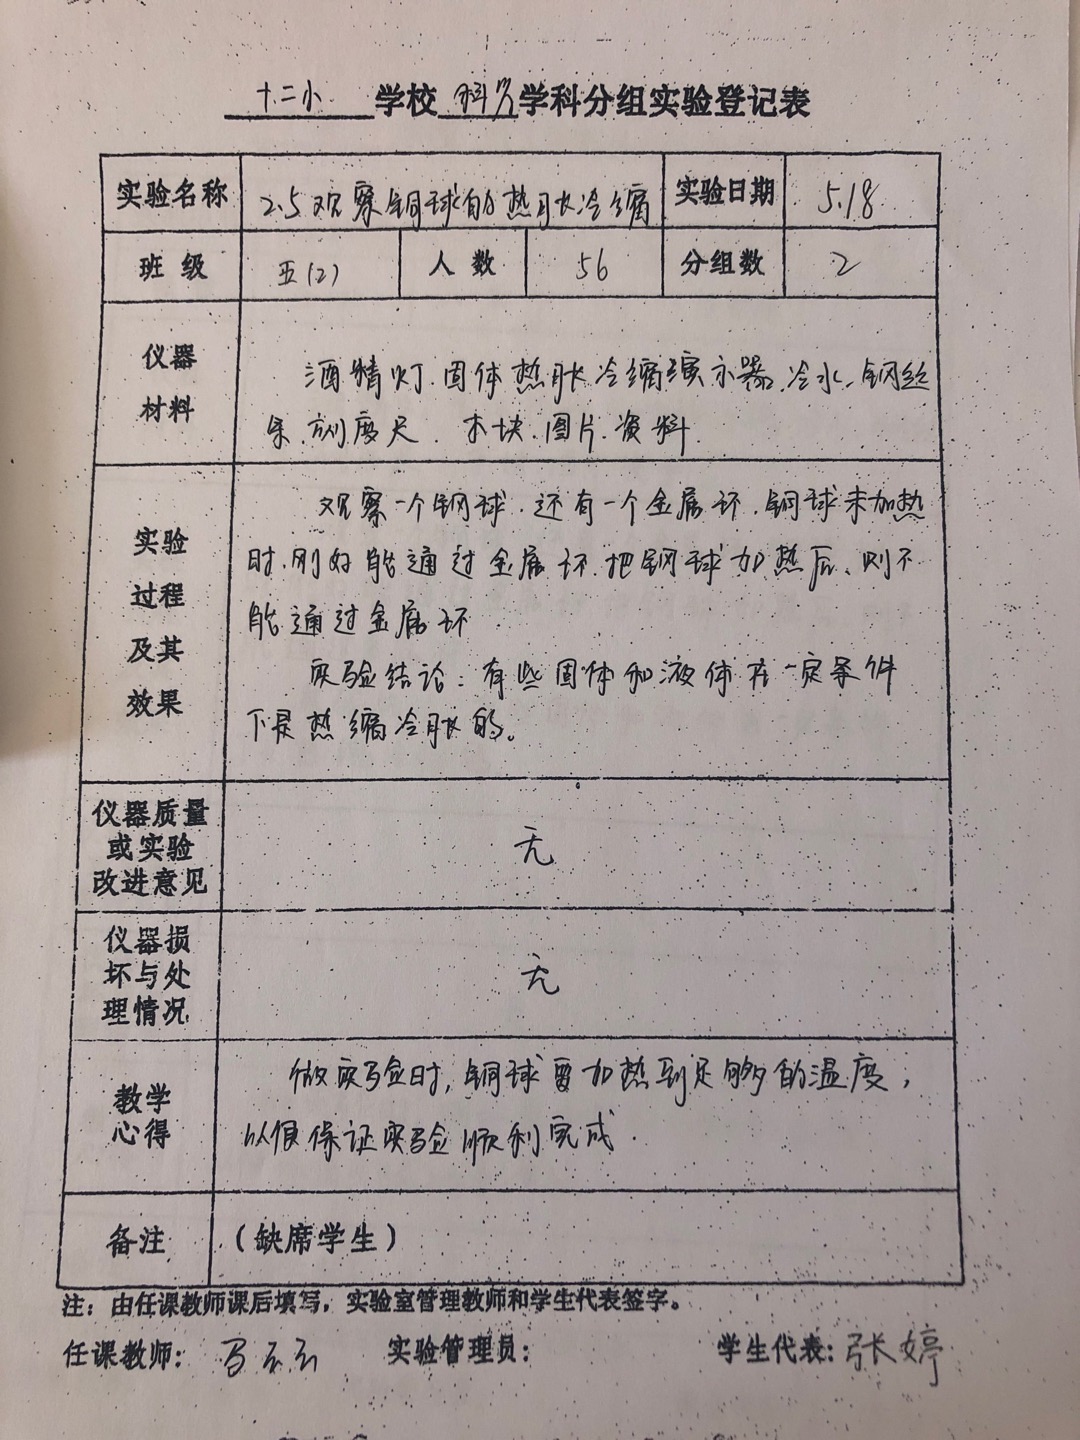 十二小 学校 科学 学科分组实验登记表
实验名称 2.5观察铜球的热胀冷缩 实验日期 5.18
班级 五(2) 人数 56 分组数 2
仪器材料
酒精灯.固体热胀冷缩演示器.冷水.钢丝
条.刻度尺.木块.图片.资料.
实验过程及其效果
观察一个钢球.还有一个金属环.铜球未加热
时.刚好能通过金属环.把钢球加热后、则不
能通过金属环
实验结论:有些固体和液体在一定条件
下是热缩冷胀的。
仪器质量或实验改进意见 无
仪器损坏与处理情况 无
教学心得
做实验时,铜球要加热到足够的温度,
以便保证实验顺利完成.
备注 (缺席学生)
注:由任课教师课后填写,实验室管理教师和学生代表签字。
任课教师: 实验管理员: 学生代表:张婷